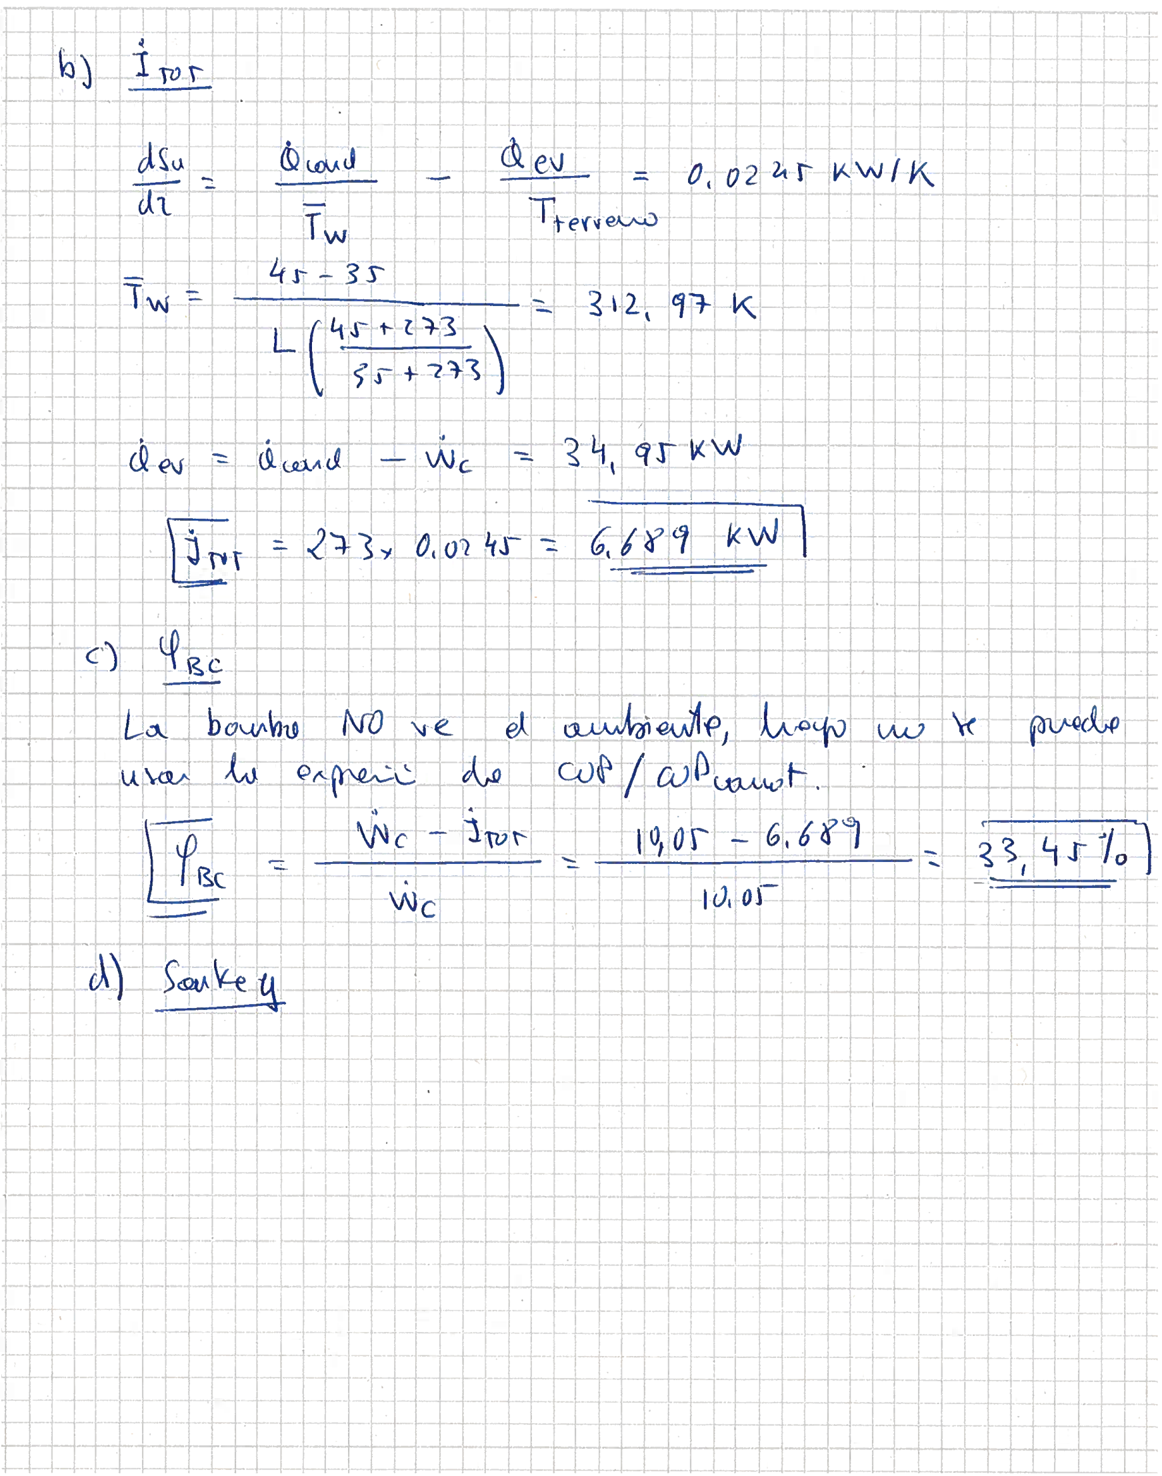 b) İ_TOT
dSu/dτ = Q̇cond/T̄w − Q̇ev/Tterreno = 0,0245 kW/K
T̄w = (45 − 35)/L((45+273)/(35+273)) = 312,97 K
Q̇ev = Q̇cond − Ẇc = 34,95 kW
İ_TOT = 273 x 0,0245 = 6,689 kW
c) φ_BC
La bomba NO ve el ambiente, luego no se puede
usar la expresi de COP/COPcarnot.
φ_BC = (Ẇc − İ_TOT)/Ẇc = (10,05 − 6,689)/10,05 = 33,45 %
d) Sankey